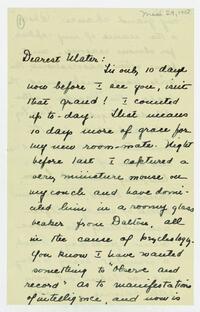 ①
Dearest Mater:
Its only 10 days
now before I see you, isn't
that grand! I counted
up to-day. That means
10 days more of grace for
my new room-mate. Night
before last I captured a
very miniature mouse on
my couch and have domi-
ciled him in a roomy glass
beaker from Dalton, all
in the cause of psychology.
You know I have wanted
something to "observe and
record" as to manifestations
of intelligence, and now is